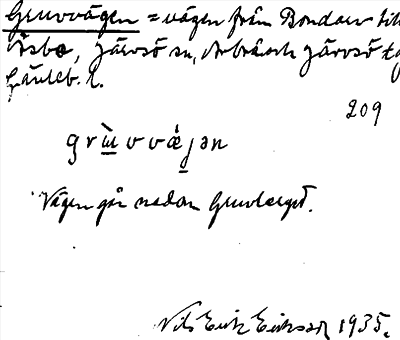 Gruvvägen = vägen från Bondarv till
Åsbo, Järvsö sn, Arbrå och Järvsö tg
Gävleb. l.
209
grɯ̀vvǽjən
Vägen går nedan Gruvberget.
Nils Erik Eriksson 1935.